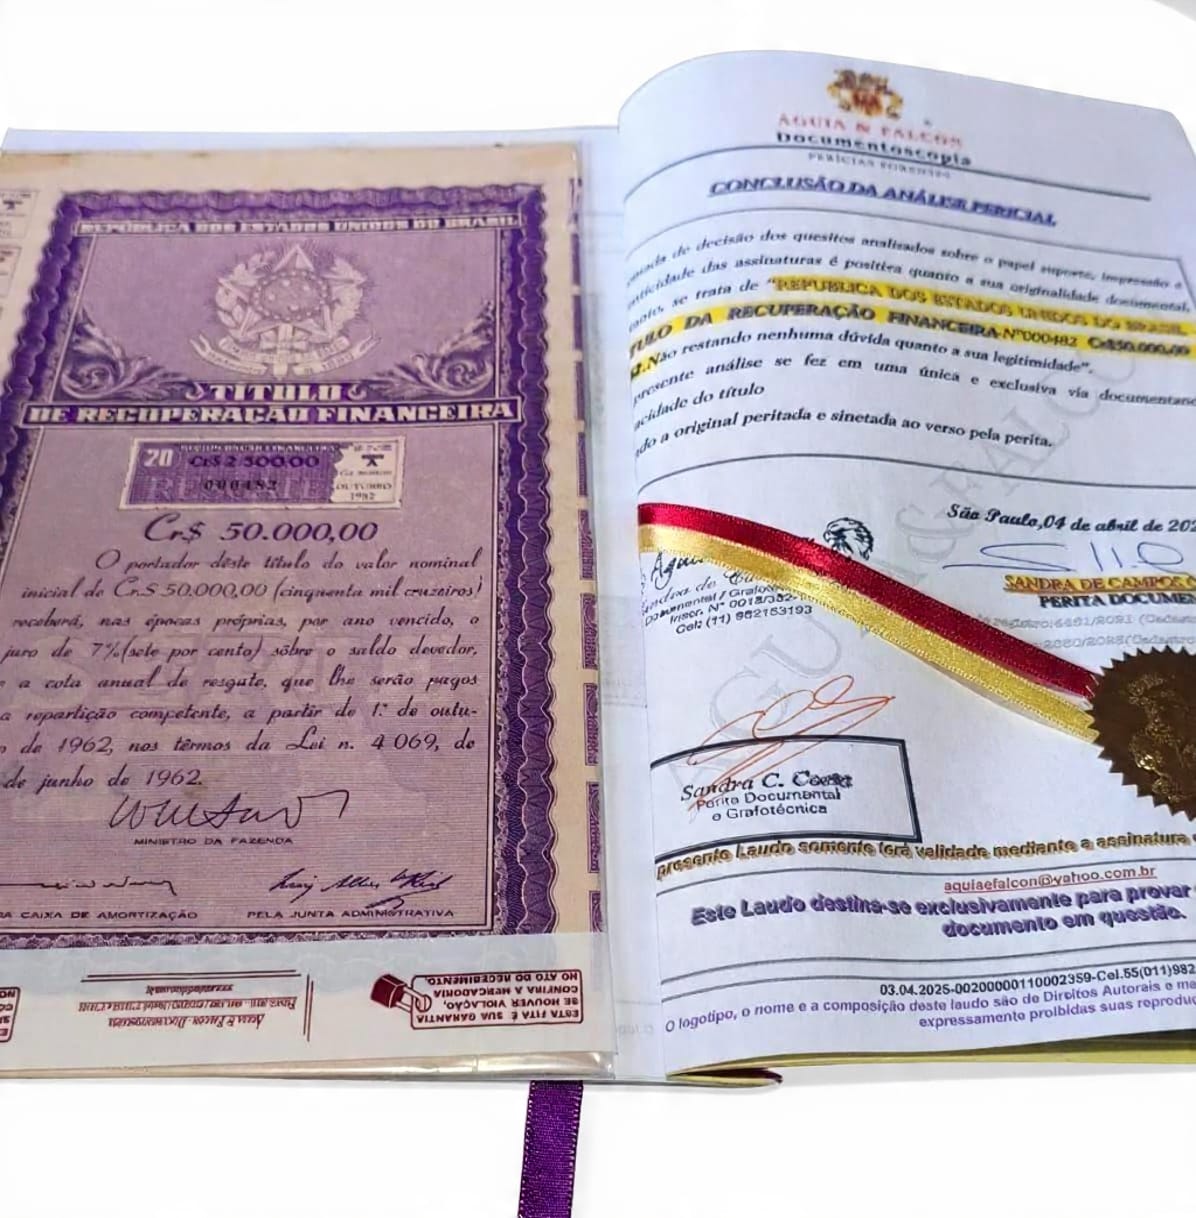 REPÚBLICA DOS ESTADOS UNIDOS DO BRASIL
TÍTULO
DE RECUPERAÇÃO FINANCEIRA
20
RECUPERAÇÃO FINANCEIRA
Cr$ 2 500,00
000482
OUTUBRO
1982
Cr$ 50.000,00
O portador dêste título do valor nominal
inicial de Cr$ 50.000,00 (cinquenta mil cruzeiros)
receberá, nas épocas próprias, por ano vencido, o
juro de 7% (sete por cento) sôbre o saldo devedor,
e a cota anual de resgate, que lhe serão pagos
a repartição competente, a partir de 1º de outu-
de 1962, nos têrmos da Lei n. 4 069, de
de junho de 1962.
MINISTRO DA FAZENDA
CAIXA DE AMORTIZAÇÃO
PELA JUNTA ADMINISTRATIVA
ESTA FITA É SUA GARANTIA
SE HOUVER VIOLAÇÃO,
CONFIRA A MERCADORIA
NO ATO DO RECEBIMENTO.
AGUIA & FALCON
Documentoscopia
PERÍCIAS FORENSES
CONCLUSÃO DA ANÁLISE PERICIAL
de decisão dos quesitos analisados sobre o papel suporte, impressão
das assinaturas é positiva quanto a sua originalidade documental,
se trata de "REPUBLICA DOS ESTADOS UNIDOS DO BRASIL
DA RECUPERAÇÃO FINANCEIRA-Nº000482 Cr$50.000,00
Não restando nenhuma dúvida quanto a sua legitimidade".
presente análise se fez em uma única e exclusiva via
do título
a original peritada e sinetada ao verso pela perita.
São Paulo,04 de abril de
SANDRA DE CAMPOS
PERITA
Cel: (11) 982153193
Sandra C. Costa
Perita Documental
e Grafotécnica
presente Laudo somente terá validade mediante a assinatura
aguiaefalcon@yahoo.com.br
Este Laudo destina-se exclusivamente para provar
documento em questão.
03.04.2025-00200000110002359-Cel.55(011)982
O logotipo, o nome e a composição deste laudo são de Direitos Autorais e
expressamente proibidas suas